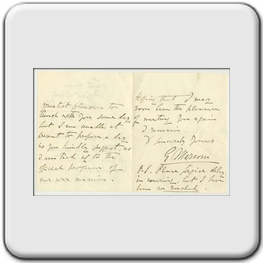 greatest pleasure to
lunch with you some day
but I am unable at
present to propose a day
as you kindly suggest as
I am tied up to the
official programme of
our war mission.
Hoping that I may
soon have the pleasure
of meeting you again
I remain
Yours
G. Marconi
P.S. Please forgive delay
in answering but I have
been so rushed.